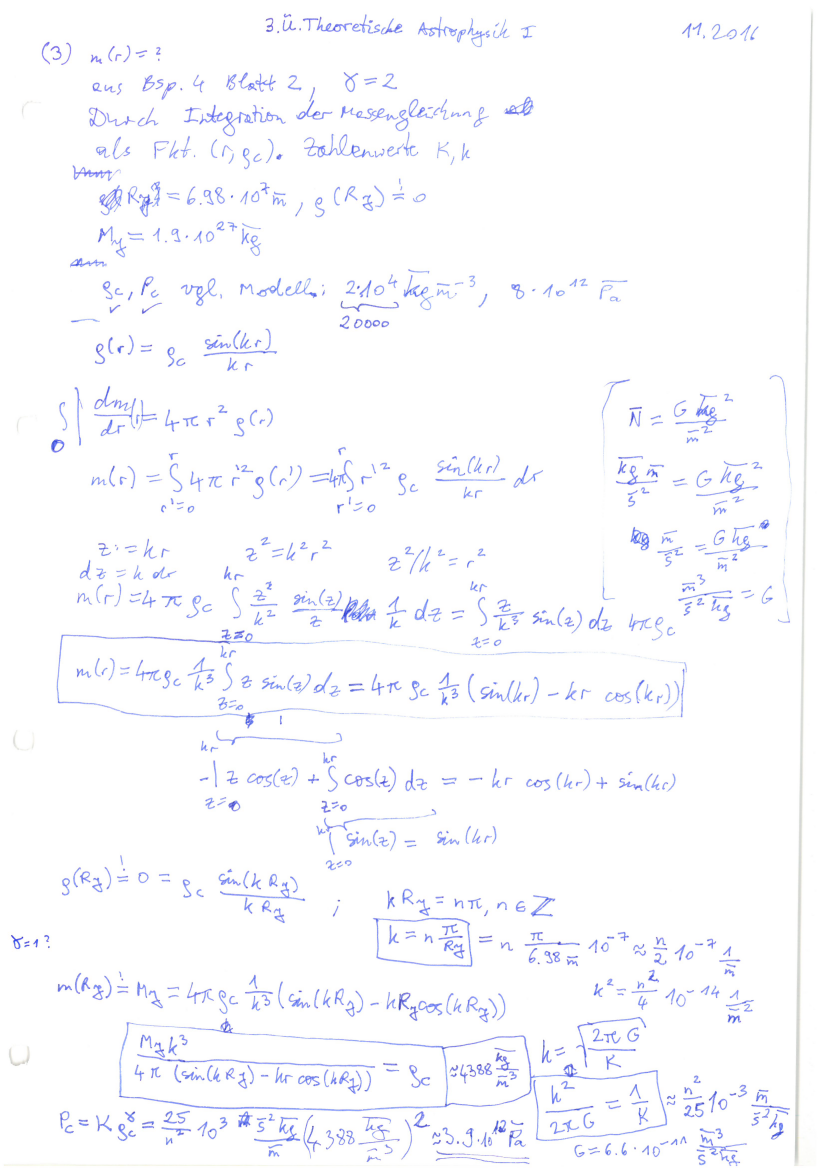 3. Ü. Theoretische Astrophysik I 11.2016
(3) m(r) = ?
aus Bsp. 4 Blatt 2, γ = 2
Durch Integration der Massengleichung
als Fkt. (r, ρc). Zahlenwerte K, k
R♃ = 6.98·10⁷ m̄, ρ(R♃) =! 0
M♃ = 1.9·10²⁷ k̄ḡ
ρc, Pc vgl. Modell: 2·10⁴ k̄ḡ m̄⁻³, 8·10¹² P̄a
✓ ✓ 20000
ρ(r) = ρc sin(kr)/kr
∫₀ | dm/dr (r) = 4π r² ρ(r)
m(r) = ∫_{r'=0}^{r} 4π r'² ρ(r') = 4π ∫_{r'=0}^{r} r'² ρc sin(kr)/kr dr
[ N̄ = G k̄ḡ²/m̄²
k̄ḡ m̄/s̄² = G k̄ḡ²/m̄²
m̄/s̄² = G k̄ḡ/m̄²
m̄³/(s̄² k̄ḡ) = G ]
z := kr z² = k²r² z²/k² = r²
dz = k dr
m(r) = 4π ρc ∫_{z=0}^{kr} z²/k² sin(z)/z 1/k dz = ∫_{z=0}^{kr} z/k³ sin(z) dz 4πρc
m(r) = 4πρc 1/k³ ∫_{z=0}^{kr} z sin(z) dz = 4π ρc 1/k³ (sin(kr) - kr cos(kr))
-|_{z=0}^{kr} z cos(z) + ∫_{z=0}^{kr} cos(z) dz = - kr cos(kr) + sin(kr)
|_{z=0}^{kr} sin(z) = sin(kr)
ρ(R♃) =! 0 = ρc sin(k R♃)/(k R♃) ; k R♃ = nπ, n ∈ ℤ
γ=1? k = n π/R♃ = n π/(6.98 m̄) 10⁻⁷ ≈ n/2 10⁻⁷ 1/m̄
k² = n²/4 10⁻¹⁴ 1/m̄²
m(R♃) =! M♃ = 4πρc 1/k³ (sin(kR♃) - kR♃ cos(kR♃))
M♃ k³/(4π (sin(kR♃) - kr cos(kR♃))) = ρc ≈ 4388 k̄ḡ/m̄³ k = √(2πG/K)
k²/(2πG) = 1/K ≈ n²/25 10⁻³ m̄/(s̄² k̄ḡ)
Pc = K ρc^γ = 25/n² 10³ s̄² k̄ḡ/m̄ (4388 k̄ḡ/m̄³)² ≈ 3.9·10¹² P̄a
G = 6.6·10⁻¹¹ m̄³/(s̄² k̄ḡ)